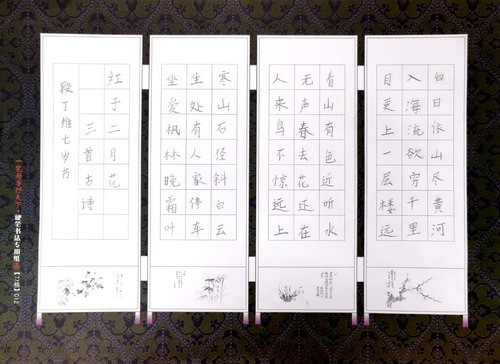 白日依山尽黄河
入海流欲穷千里
目更上一层楼远
看山有色近听水
无声春去花还在
人来鸟不惊远上
寒山石径斜白云
生处有人家停车
坐爱枫林晚霜叶
红于二月花
三首古诗
段丁维七岁书
硬笔书法专用纸